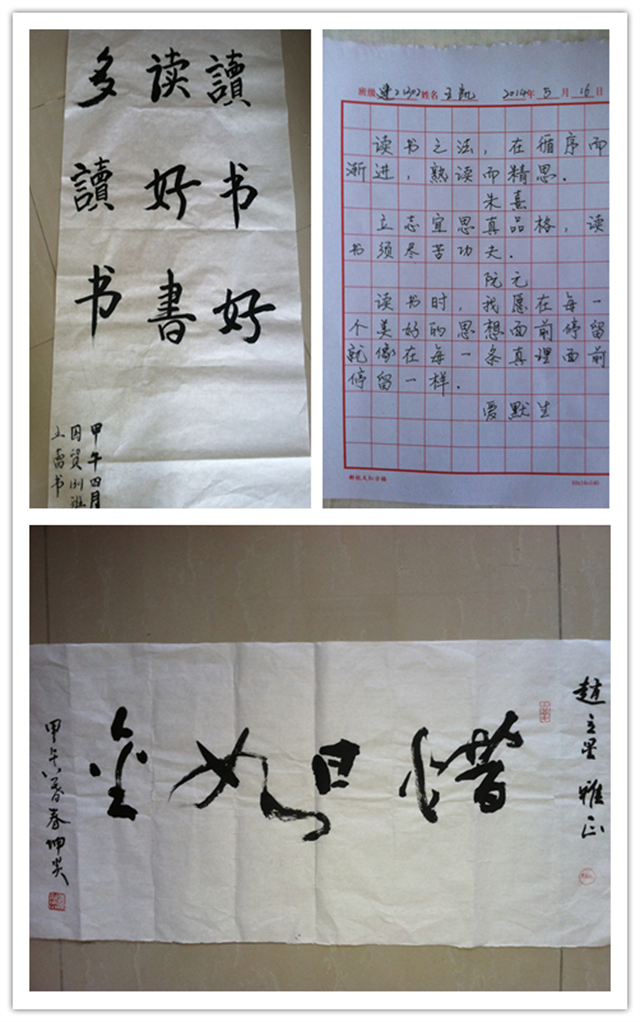 讀书好
读好書
多讀书
甲午四月
书
班级 姓名 王凯 2014年5月16日
读书之法，在循序而
渐进，熟读而精思.
朱熹
立志宜思真品格，读
书须尽苦功夫.
阮元
读书时，我愿在每一
个美好的思想面前停留
就像在每一条真理面前
停留一样.
爱默生
趙立星 雅正
惜日如金
甲午暮春坤